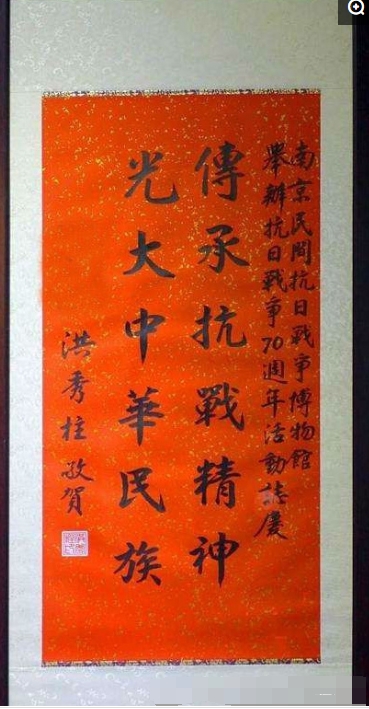 南京民間抗日戰爭博物館
舉辦抗日戰爭70週年活動誌慶
傳承抗戰精神
光大中華民族
洪秀柱敬賀